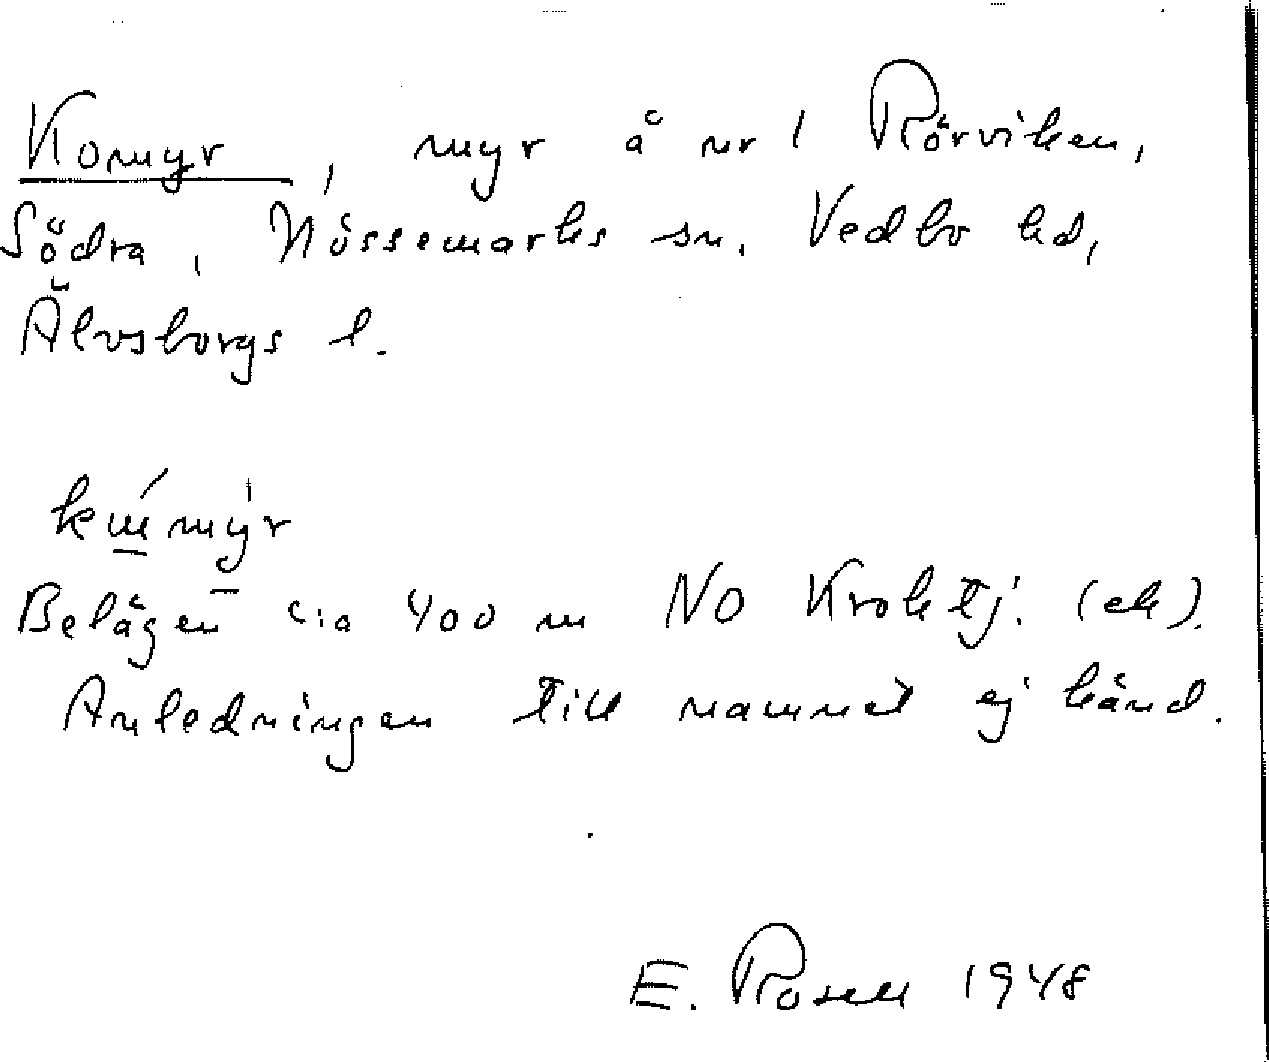 Komyr, myr å nr 1 Rörviken,
Södra, Nössemarks sn. Vedbo hd,
Älvsborgs l.
Belägen c:a 400 m NO Kroktj. (ek).
Anledningen till namnet ej känd.
E. Rosell 1948